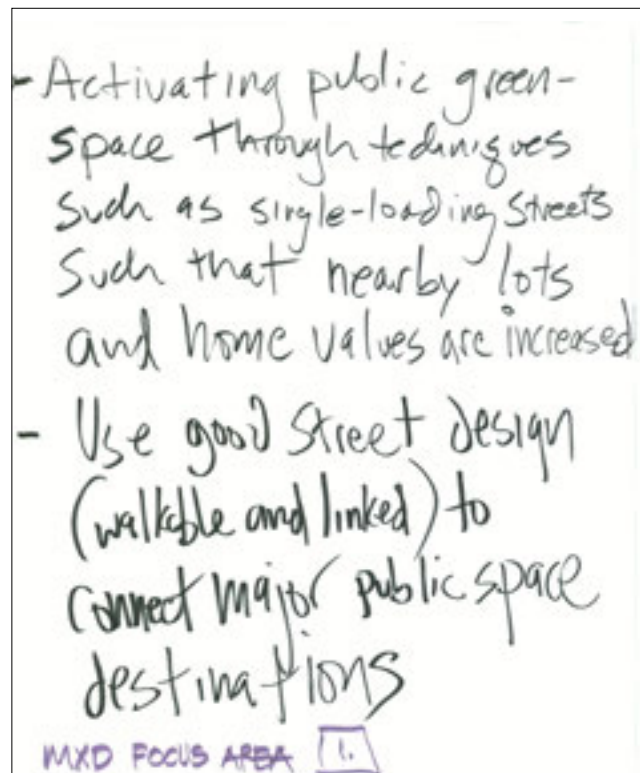 - Activating public green-
space through techniques
such as single-loading streets
such that nearby lots
and home values are increased
- Use good street design
(walkable and linked) to
connect major public space
destinations
MXD FOCUS AREA 1.